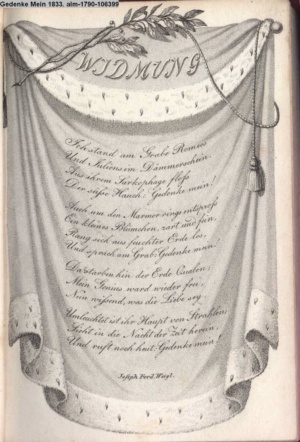 Gedenke Mein 1833. alm-1790-106399
WIDMUNG
Ich stand am Grabe Romeos
Und Juliens im Dämmerschein
Aus ihrem Sarkophage floß
Der süße Hauch: Gedenke mein!
Auch um den Marmor rings entsproß
Ein blaues Blümchen, zart und fein,
Rang sich aus feuchter Erde los,
Und sprach am Grab: Gedenke mein.
Da starben hin der Erde Qualen,
Mein Genius ward wieder frei,
Nun wissend, was die Liebe sey
Umleuchtet ist ihr Haupt von Strahlen
Sieht in die Nacht der Zeit herein,
Und ruft noch heut: Gedenke mein!
Joseph Ferd. Weigl.